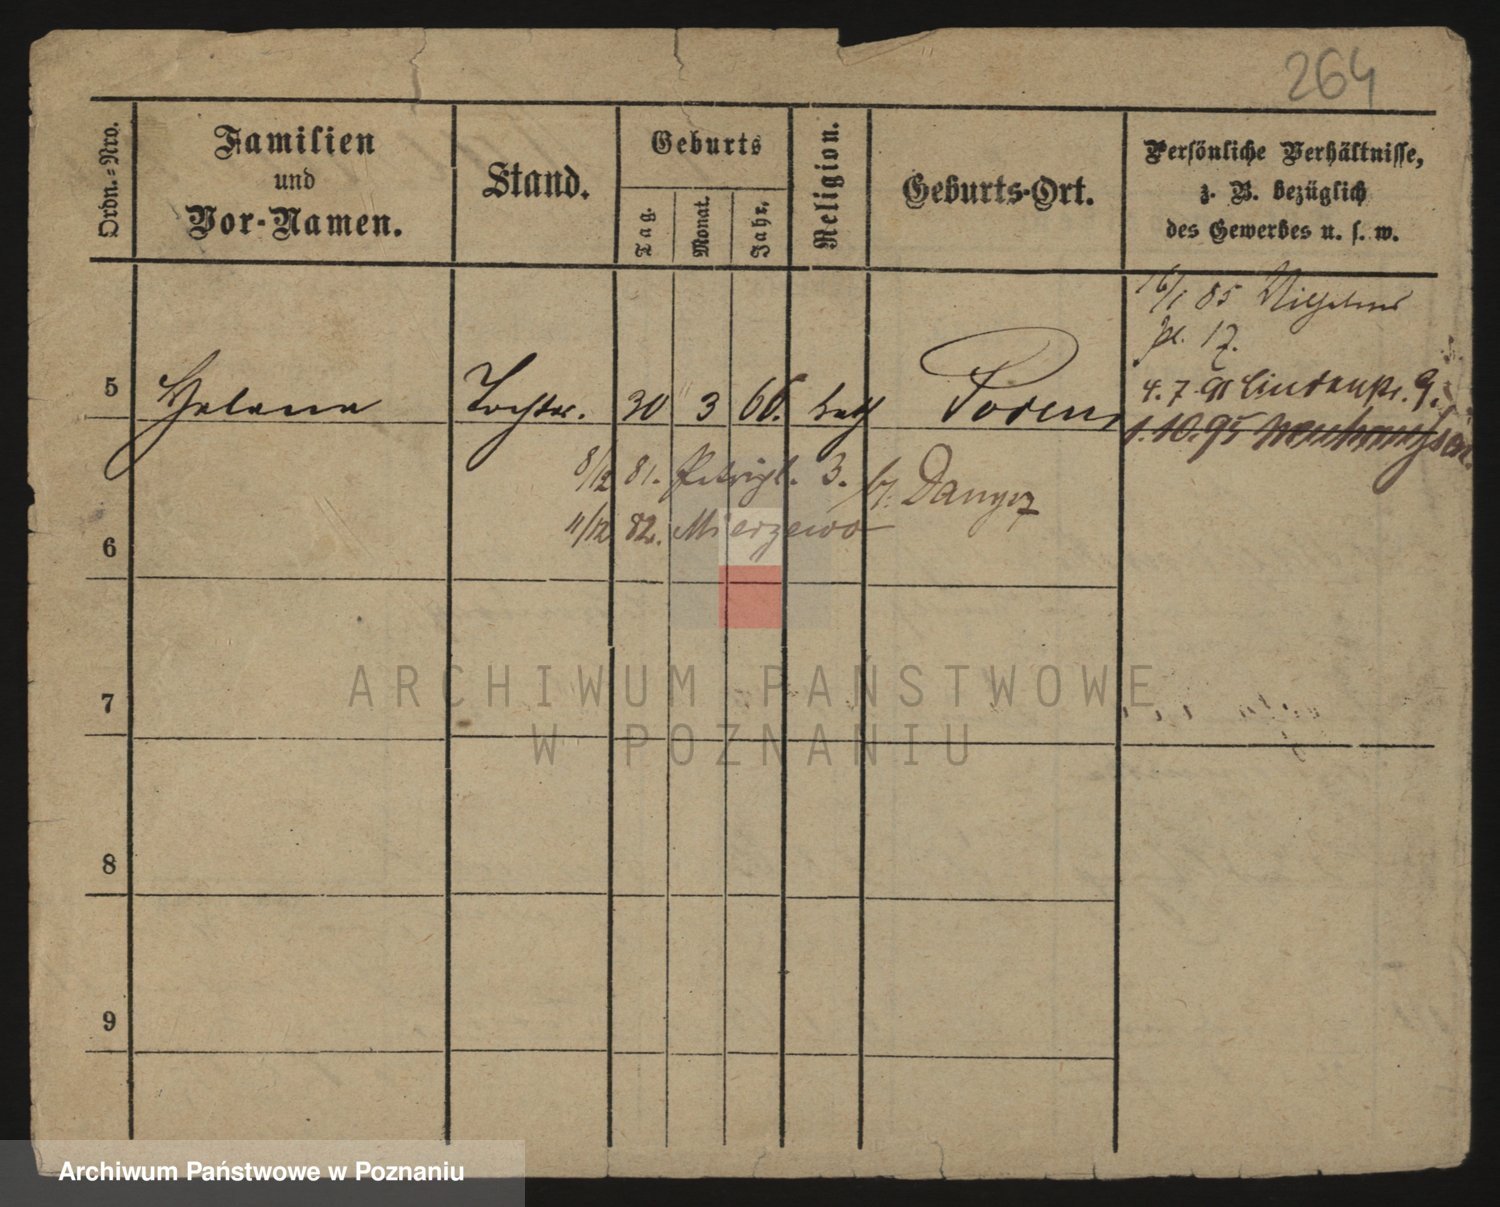 264
Ordn.-Nro.
Familien
und
Vor-Namen.
Stand.
Geburts
Tag.
Monat.
Jahr.
Religion.
Geburts-Ort.
Persönliche Verhältnisse,
z. B. bezüglich
des Gewerbes u. s. w.
16/1 85 Wilhelms
pl. 17.
5 Helena Tochter. 30 3 66. kath Posen
4. 7. 91 Lindenstr. 9.
1. 10. 95
8/12 81. Petripl. 3.
11/12 82. Mierzewo
6
7
8
9
ARCHIWUM PAŃSTWOWE
W POZNANIU
Archiwum Państwowe w Poznaniu